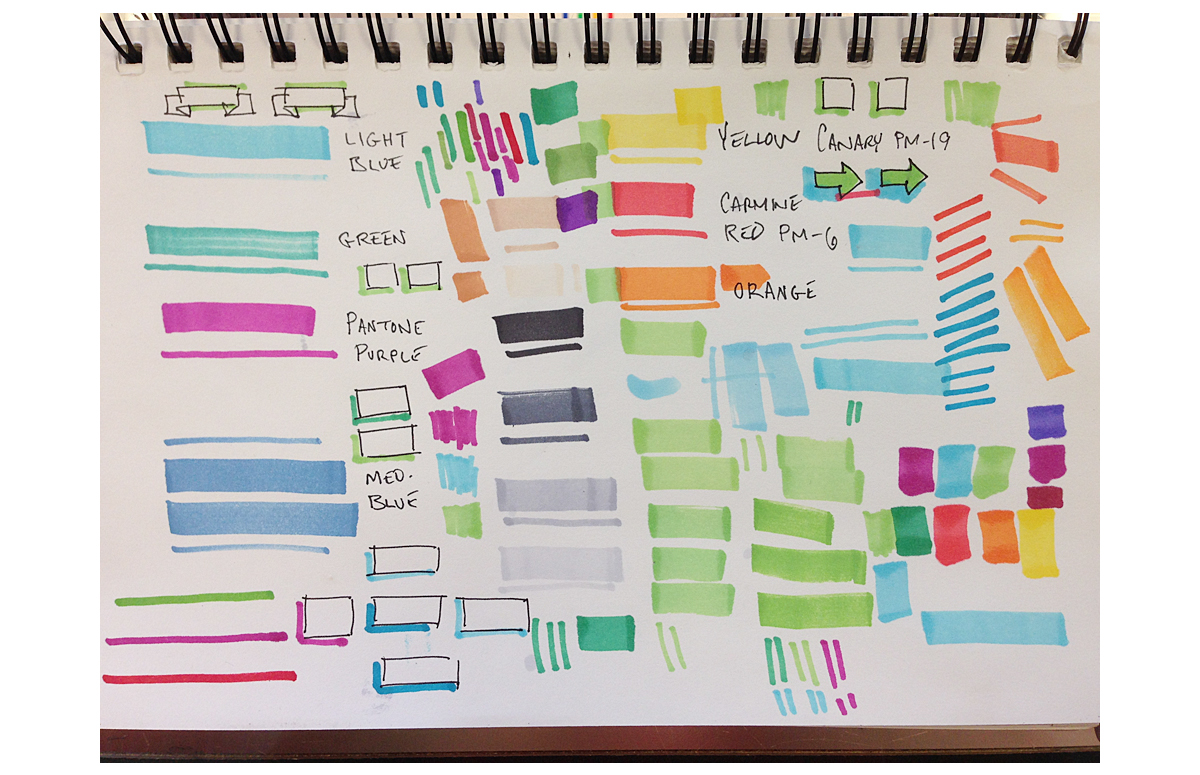 LIGHT
BLUE
YELLOW CANARY PM-19
CARMINE
RED PM-6
GREEN
ORANGE
PANTONE
PURPLE
MED.
BLUE